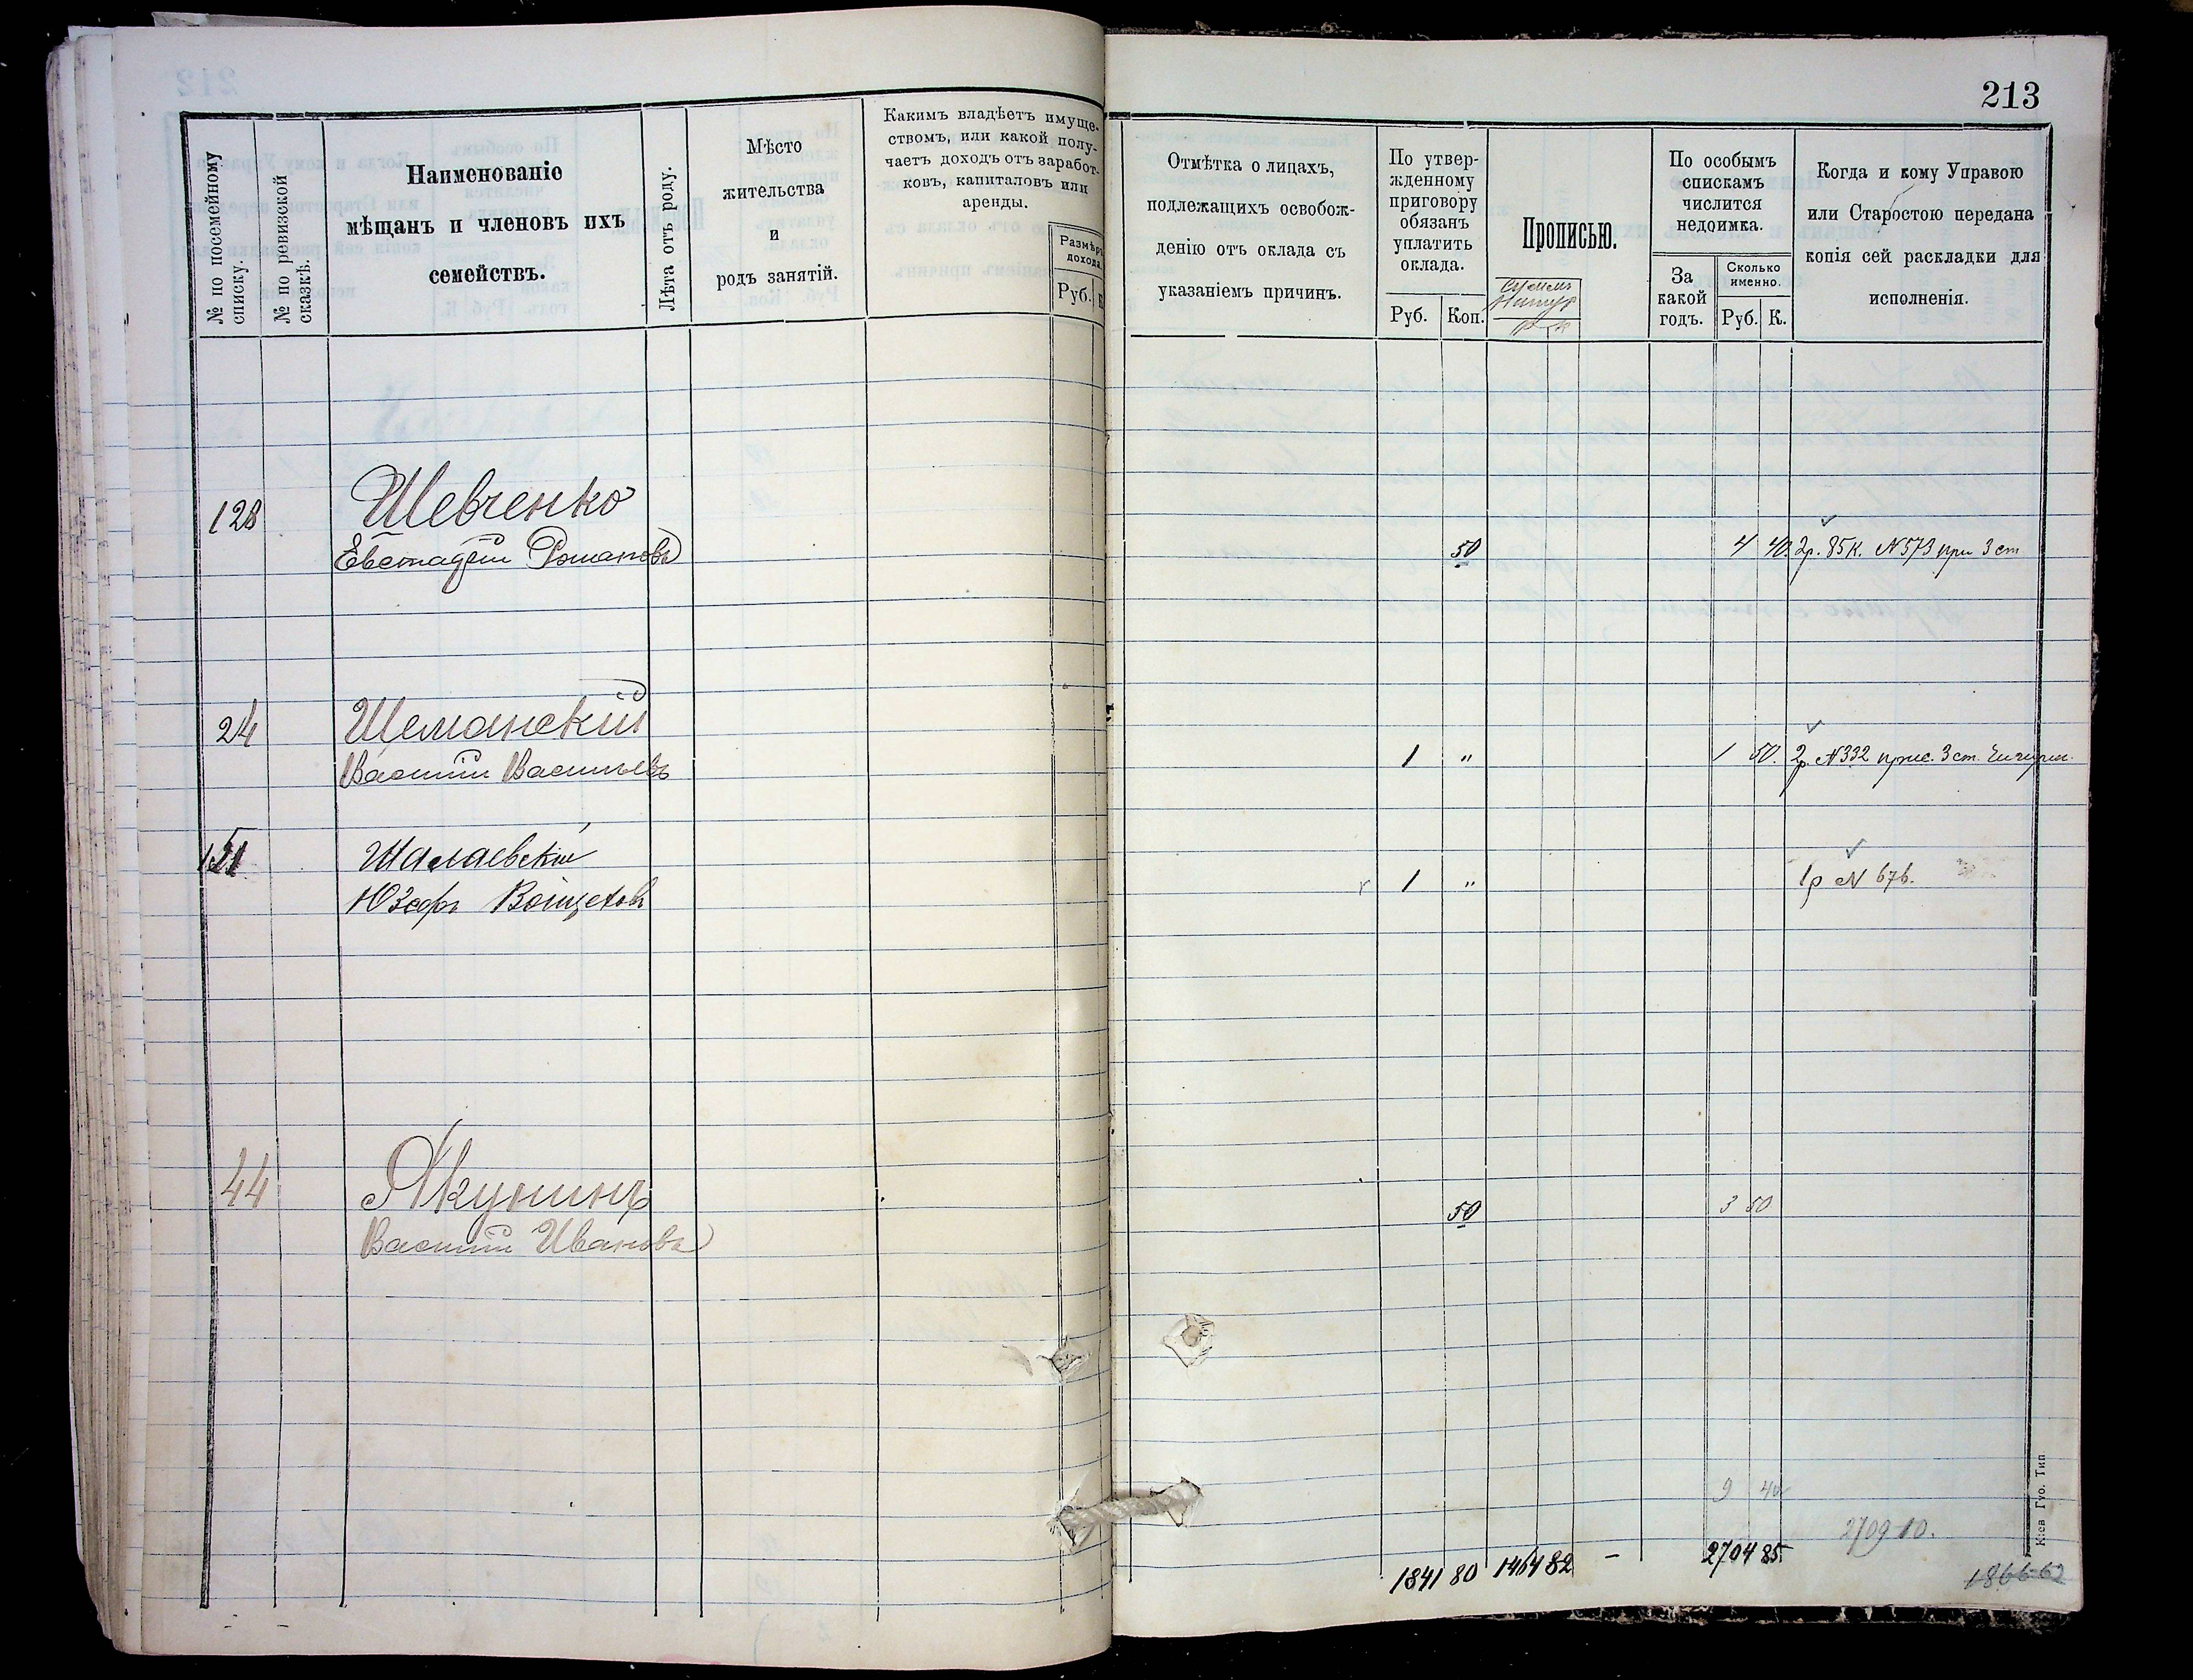 213
№ по посемейному списку.
№ по ревизской сказкѣ.
Наименованіе
мѣщанъ и членовъ ихъ
семействъ.
Лѣта отъ роду.
Мѣсто
жительства
и
родъ занятій.
Какимъ владѣетъ имуще-
ствомъ, или какой полу-
чаетъ доходъ отъ заработ-
ковъ, капиталовъ или
аренды.
Размѣръ
дохода.
Руб.
Отмѣтка о лицахъ,
подлежащихъ освобож-
денію отъ оклада съ
указаніемъ причинъ.
По утвер-
жденному
приговору
обязанъ
уплатить
оклада.
Руб. Коп.
Прописью.
По особымъ
спискамъ
числится
недоимка.
За
какой
годъ.
Сколько
именно.
Руб. К.
Когда и кому Управою
или Старостою передана
копія сей раскладки для
исполненія.
128 Шевченко
Евстафій Романовъ 50 4 40. 2р. 85к. N 573 при 3 ст
24 Щеманскій
Василій Васильевъ 1 " 1 50. 2р. N 332 3 ст.
151 Шалаевскій
Юзефъ Войцеховъ 1 " 1р N 676.
44 Якунинъ 50 3 50
Василій Ивановъ
9 40
2709 10.
1841 80 1464 82 - 2704 85
1866 62
Кіев Губ. Тип